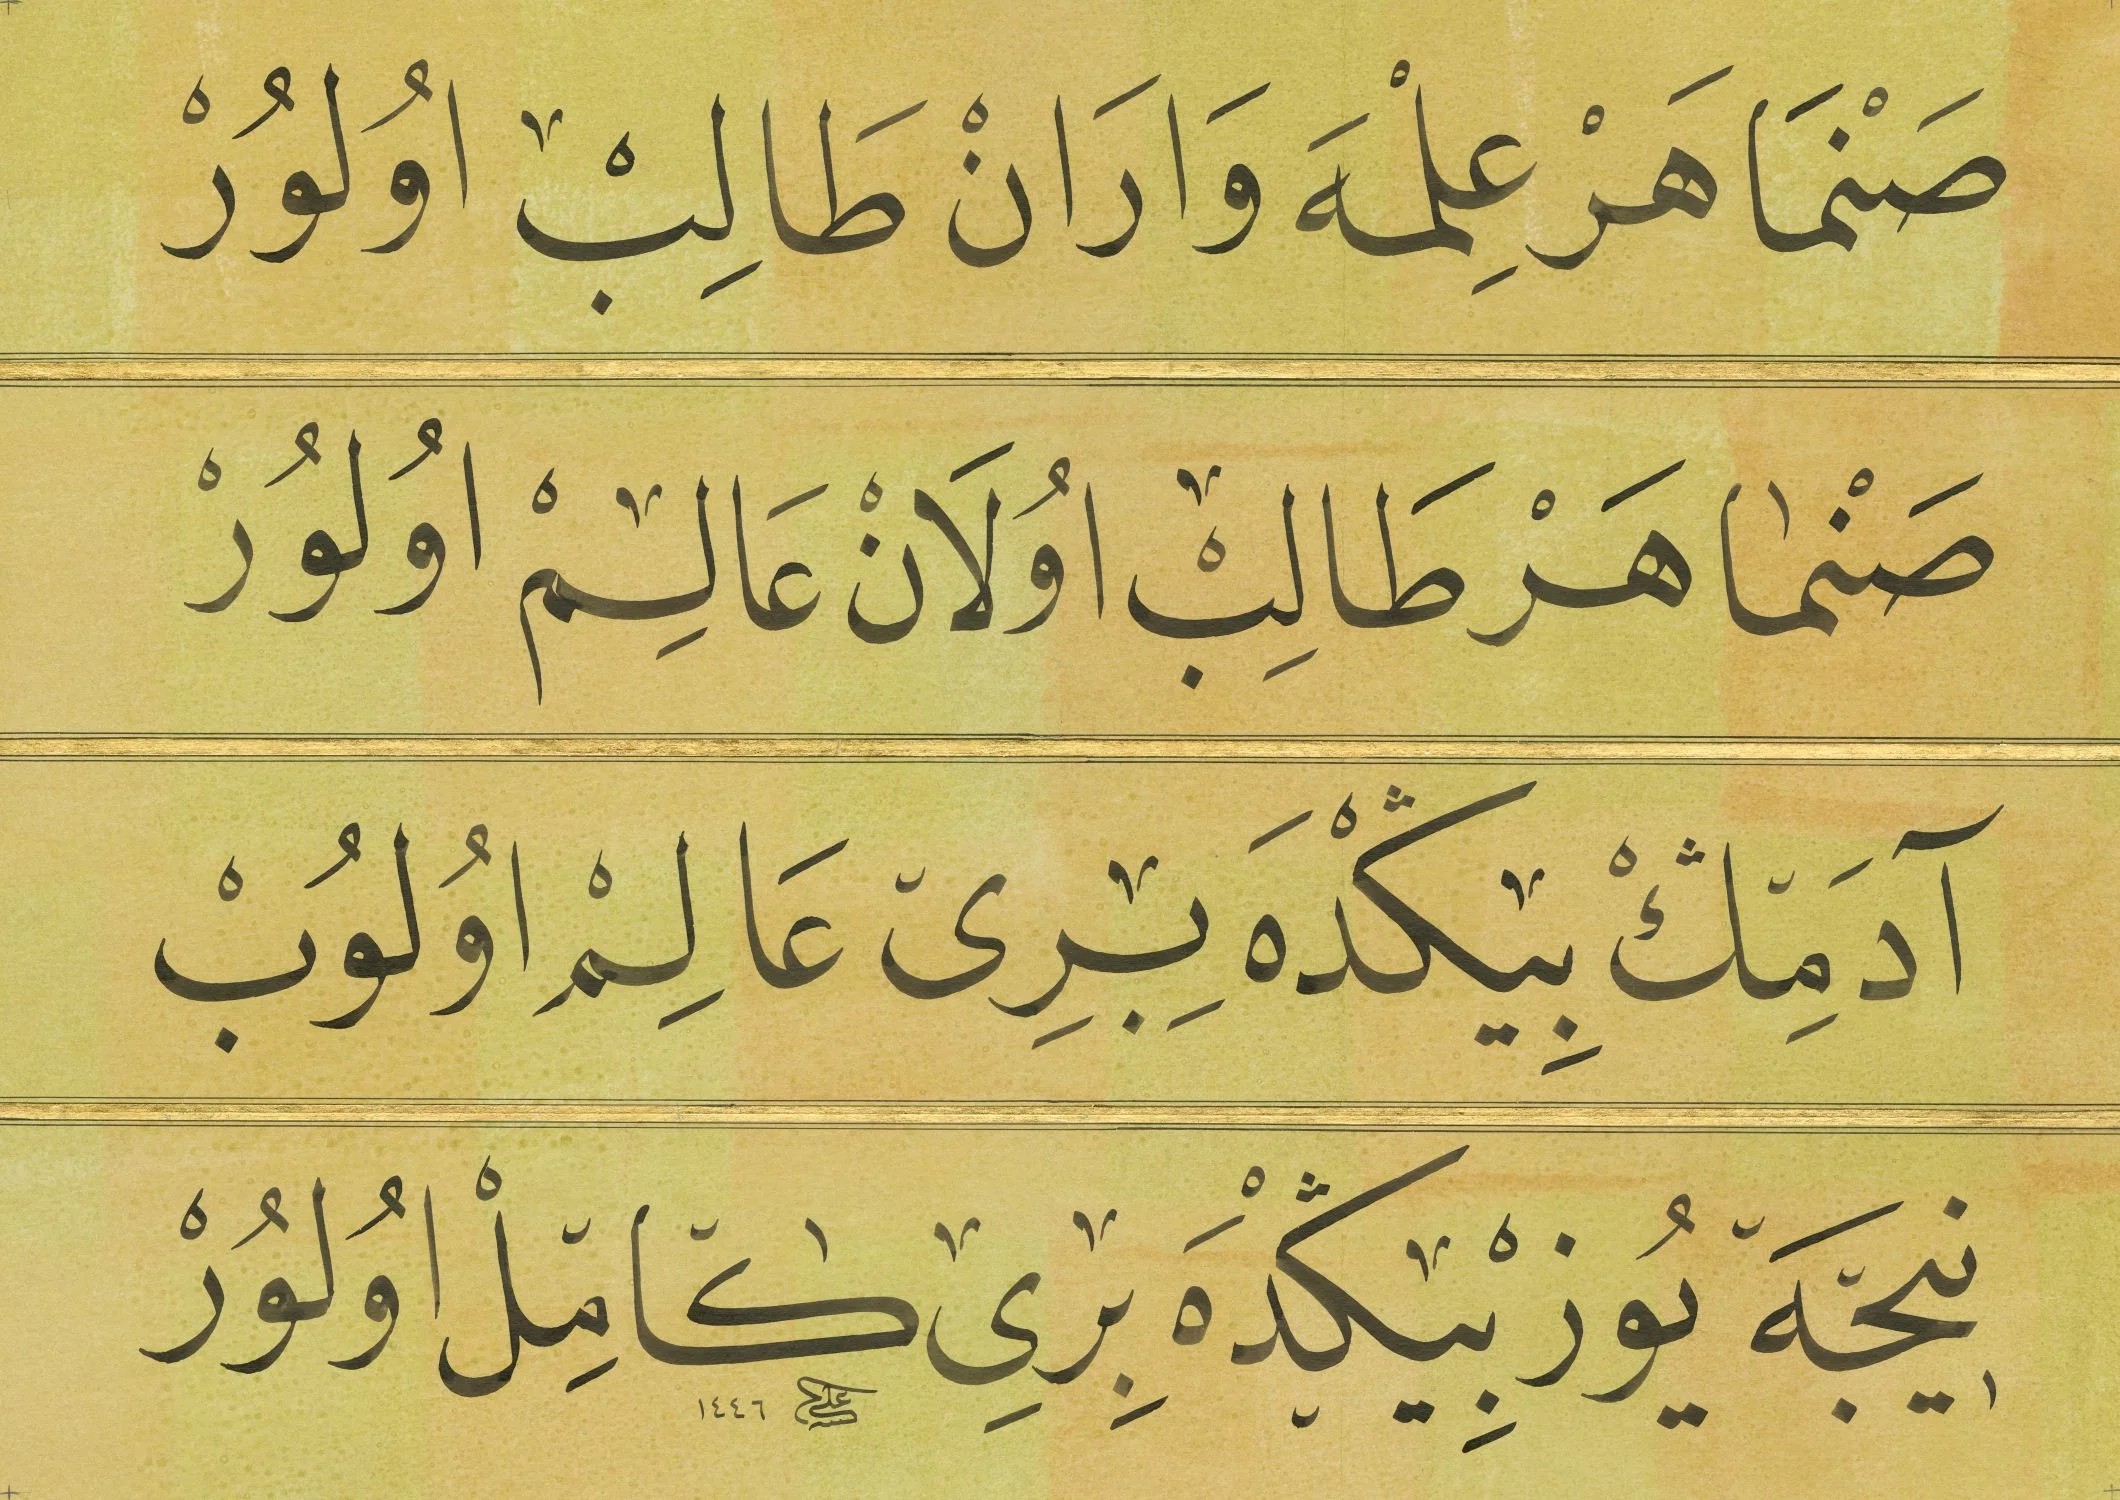 صَنْمَا هَرْ عِلْمَه وَارَانْ طَالِبْ اُولُورْ
صَنْمَا هَرْ طَالِبْ اُولَانْ عَالِمْ اُولُورْ
آدَمِڭْ بِيڭْدَه بِرِى عَالِمْ اُولُوبْ
نيجَه يُوزْ بِيڭْدَه بِرِى كَامِلْ اُولُورْ
١٤٤٦